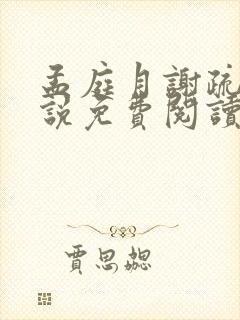 孟庭月謝疏
說免費閱讀
賈思勰